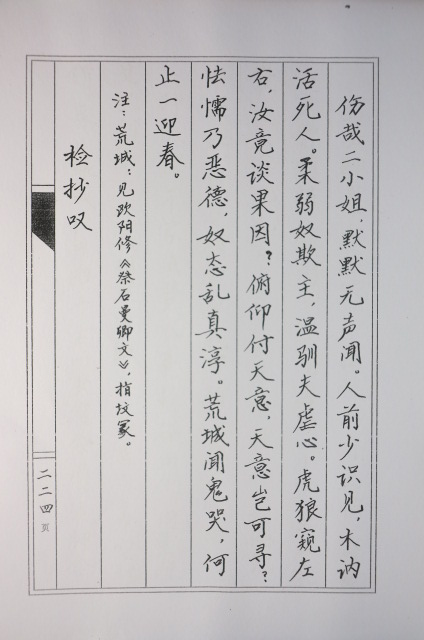 伤哉二小姐，默默无声闻。人前少识见，木讷
活死人。柔弱奴欺主，温驯夫虐心。虎狼窥左
右，汝竟谈果因？俯仰付天意，天意岂可寻？
怯懦乃恶德，奴态乱真淳。荒城闻鬼哭，何
止一迎春。
注：荒城：见欧阳修《祭石曼卿文》，指坟冢。
检抄叹
二二四页